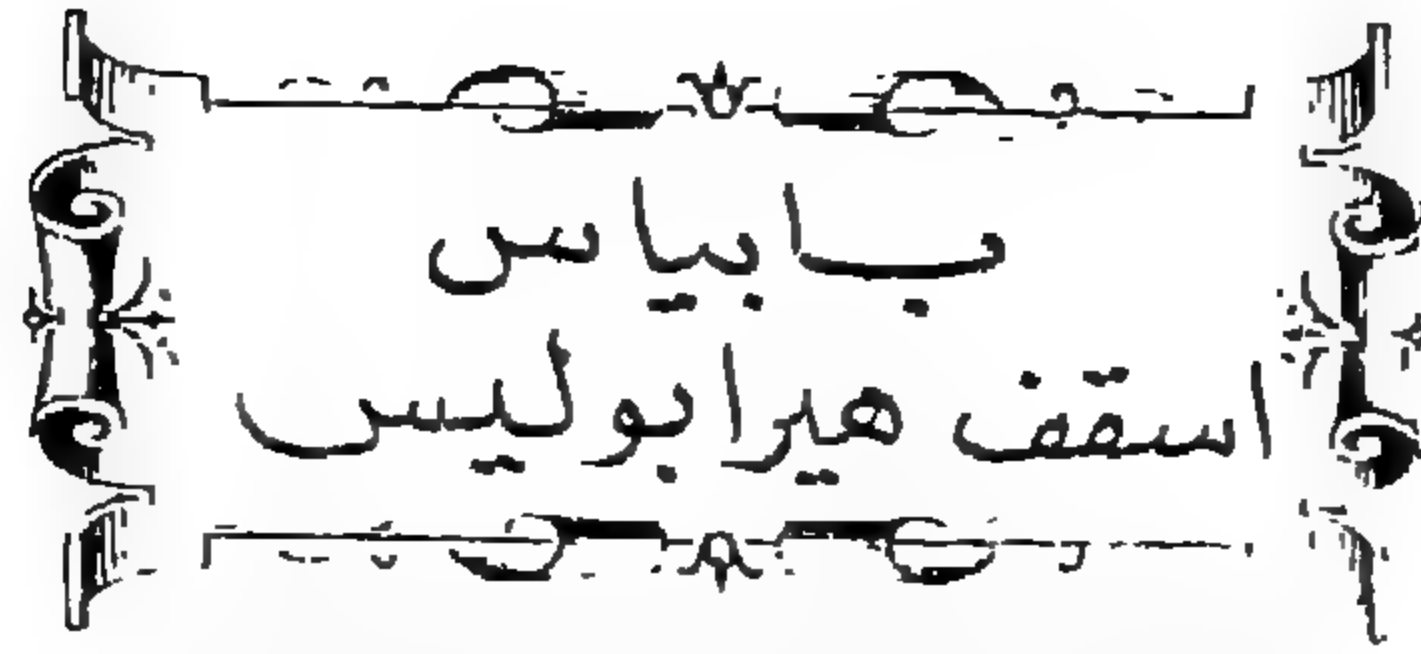 بابياس
اسقف هيرابوليس